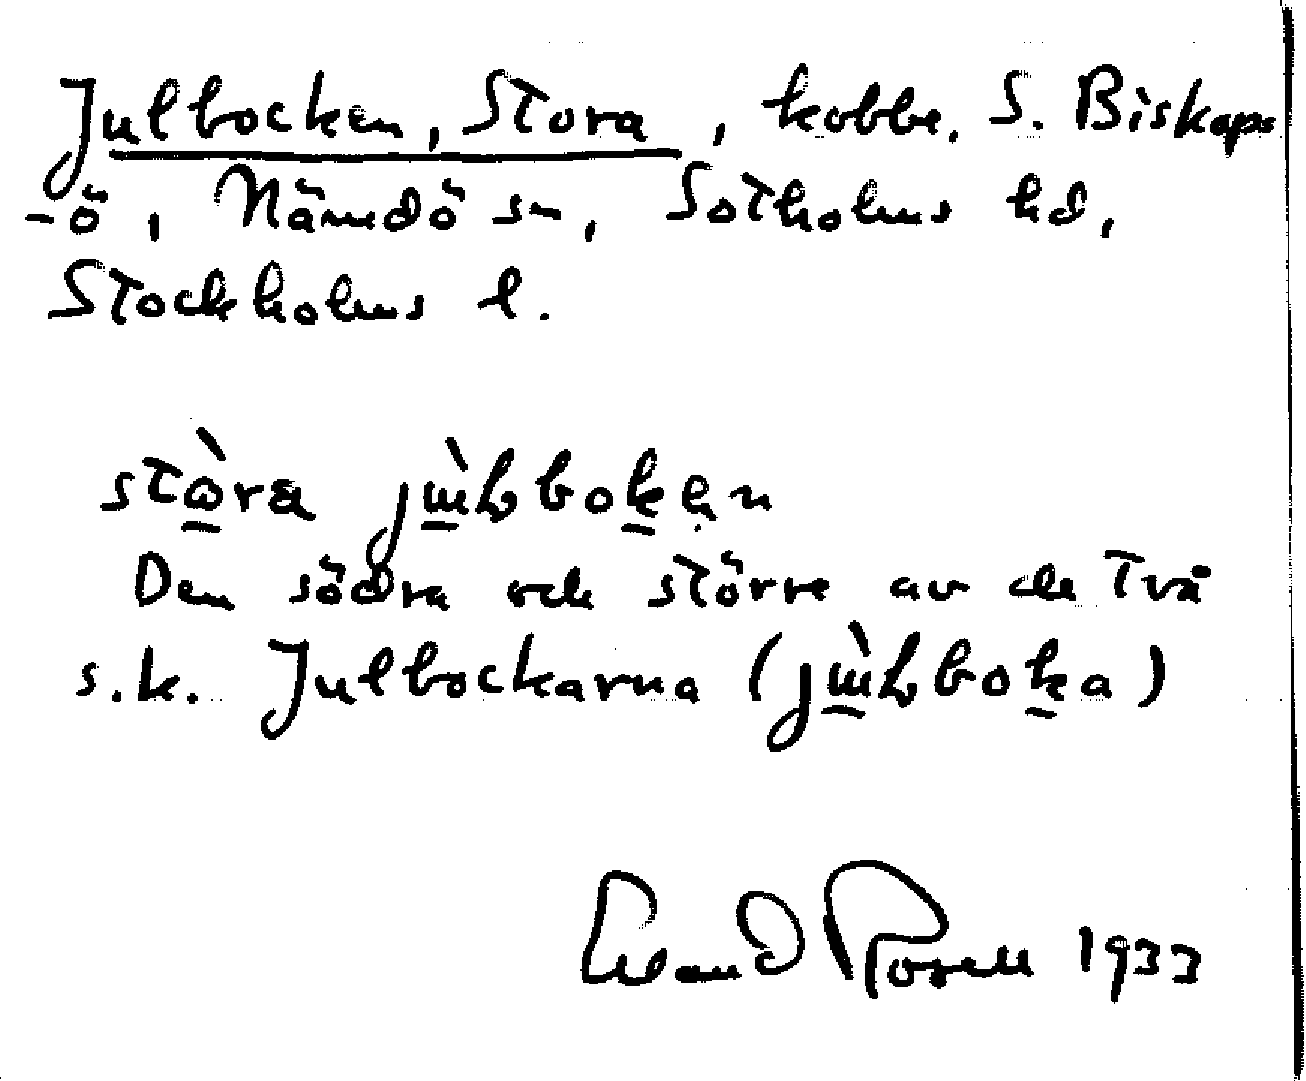 Julbocken, Stora, kobbe, S. Biskops
-ö, Nämdö sn, Sotholms hd,
Stockholms l.
stòra jùlboken
Den södra och större av de två
s.k. Julbockarna (jùlboka)
Erland Rosell 1933